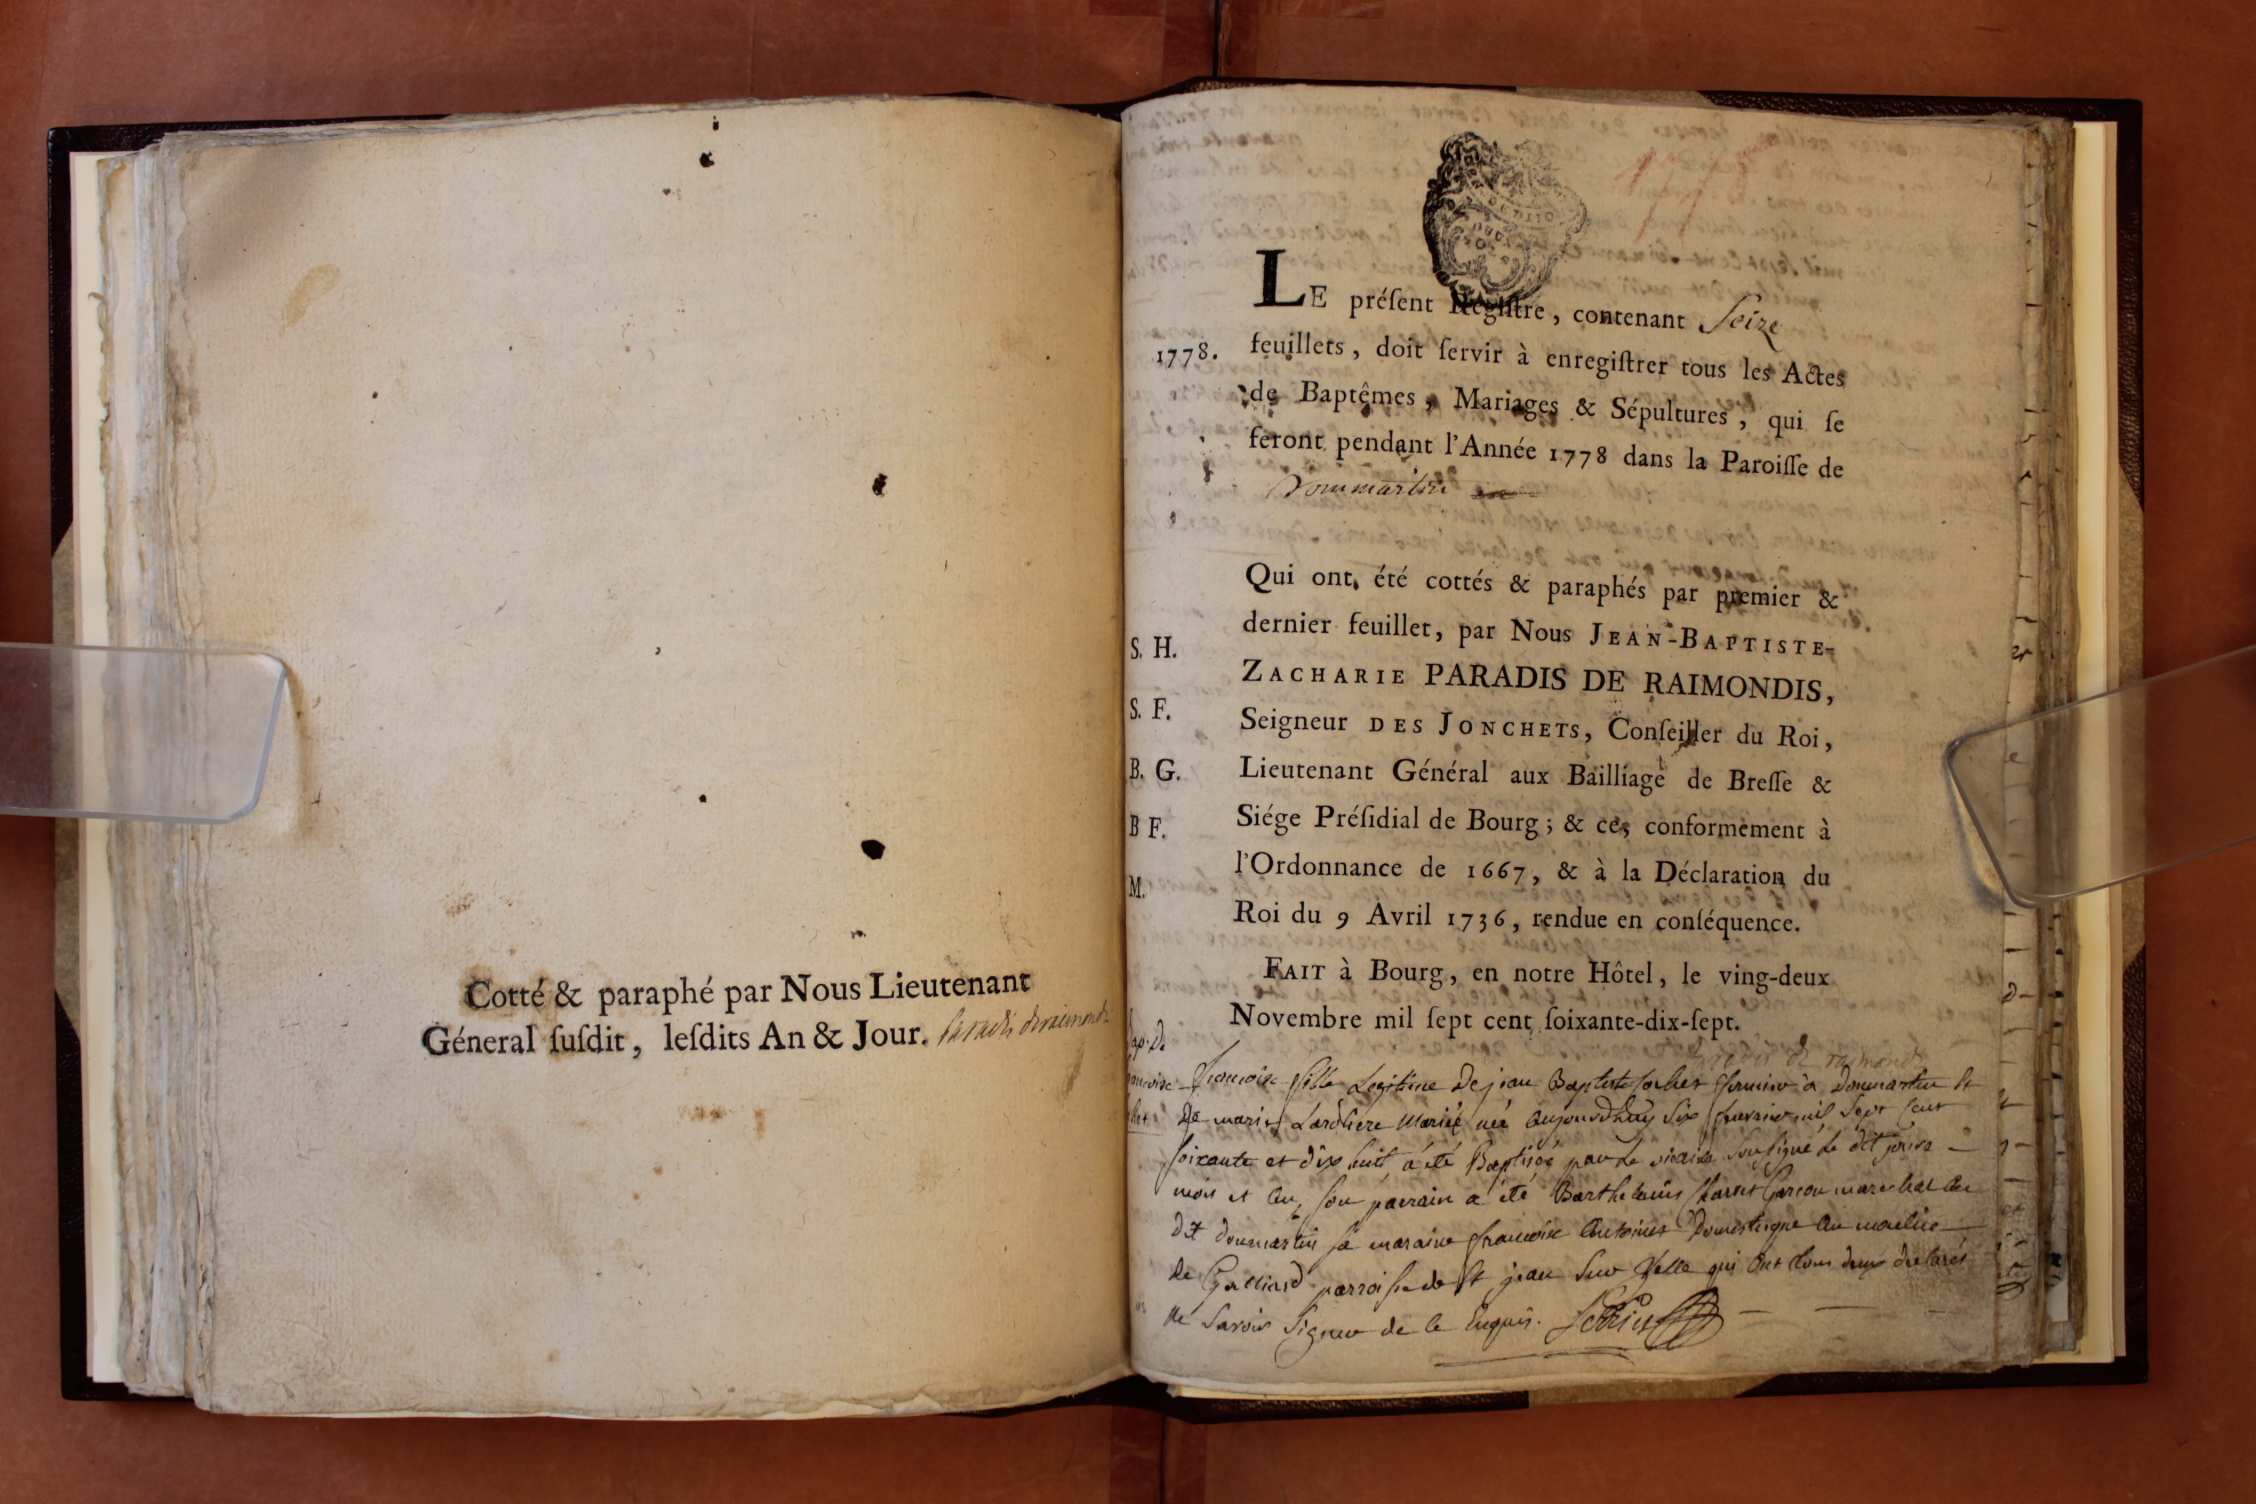 Cotté & paraphé par Nous Lieutenant
Géneral ſuſdit, leſdits An & Jour. Paradis deraimondis
LE préſent Regiſtre, contenant Seize
1778.
feuillets, doit ſervir à enregiſtrer tous les Actes
de Baptêmes, Mariages & Sépultures, qui ſe
feront pendant l'Année 1778 dans la Paroiſſe de
Dommartin
Qui ont été cottés & paraphés par premier &
dernier feuillet, par Nous JEAN-BAPTISTE-
ZACHARIE PARADIS DE RAIMONDIS,
Seigneur DES JONCHETS, Conſeiller du Roi,
Lieutenant Général aux Bailliage de Breſſe &
Siége Préſidial de Bourg; & ce, conformément à
l'Ordonnance de 1667, & à la Déclaration du
Roi du 9 Avril 1736, rendue en conſéquence.
S. H.
S. F.
B. G.
B F.
M.
FAIT à Bourg, en notre Hôtel, le ving-deux
Novembre mil ſept cent ſoixante-dix-ſept.
Paradis de raimondis
francoise fille Legitime De jean Baptiste fermier à Dommartin et
De marie Lardiere Mariés née aujourdhuy six fevrier mil sept cent
soixante et dix huit a été Baptisée par le vicaire soussigné le dit jour
mois et an, son parrain a été Barthelemis garcon marechal au
dit dommartin sa maraine francoise Domestique au moulin
de paroisse de St jean sur Velle qui ont tous deux declarés
ne savoir signer de ce Enquis.